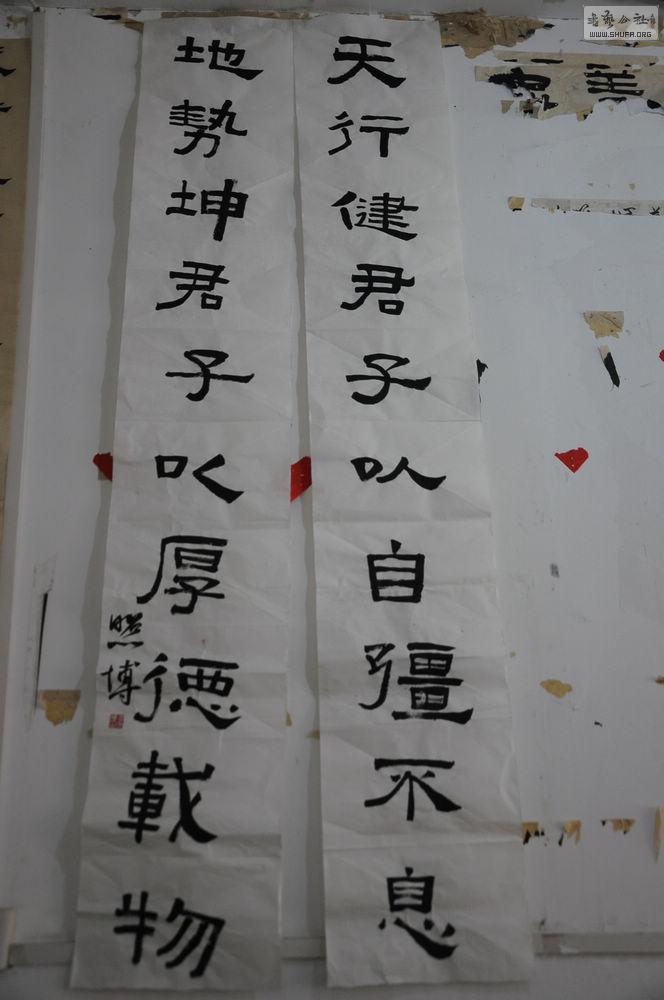 天行健君子以自彊不息
地勢坤君子以厚德載物
照博
书艺公社
WWW.SHUFA.ORG